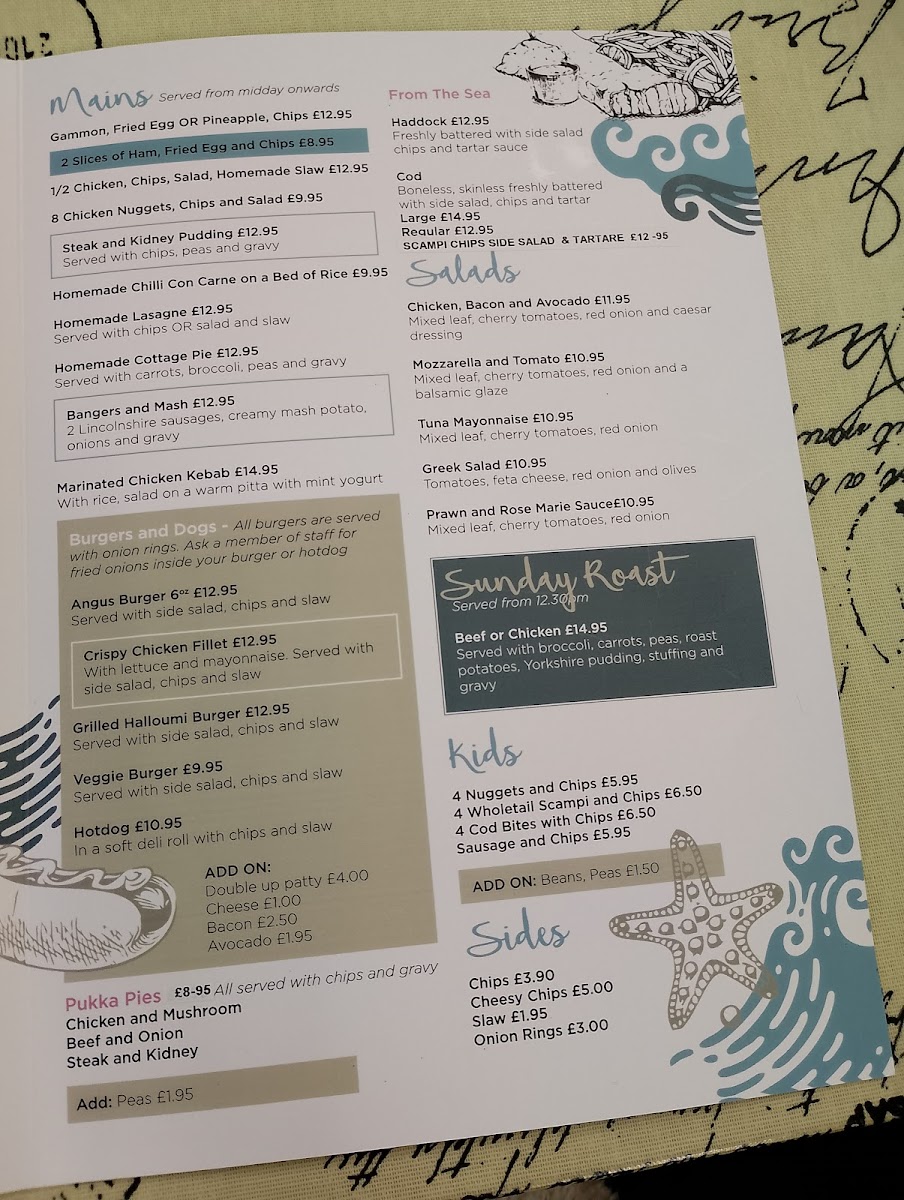 Mains Served from midday onwards
Gammon, Fried Egg OR Pineapple, Chips £12.95
2 Slices of Ham, Fried Egg and Chips £8.95
1/2 Chicken, Chips, Salad, Homemade Slaw £12.95
8 Chicken Nuggets, Chips and Salad £9.95
Steak and Kidney Pudding £12.95
Served with chips, peas and gravy
Homemade Chilli Con Carne on a Bed of Rice £9.95
Homemade Lasagne £12.95
Served with chips OR salad and slaw
Homemade Cottage Pie £12.95
Served with carrots, broccoli, peas and gravy
Bangers and Mash £12.95
2 Lincolnshire sausages, creamy mash potato,
onions and gravy
Marinated Chicken Kebab £14.95
With rice, salad on a warm pitta with mint yogurt
Burgers and Dogs - All burgers are served
with onion rings. Ask a member of staff for
fried onions inside your burger or hotdog
Angus Burger 6oz £12.95
Served with side salad, chips and slaw
Crispy Chicken Fillet £12.95
With lettuce and mayonnaise. Served with
side salad, chips and slaw
Grilled Halloumi Burger £12.95
Served with side salad, chips and slaw
Veggie Burger £9.95
Served with side salad, chips and slaw
Hotdog £10.95
In a soft deli roll with chips and slaw
ADD ON:
Double up patty £4.00
Cheese £1.00
Bacon £2.50
Avocado £1.95
Pukka Pies £8-95 All served with chips and gravy
Chicken and Mushroom
Beef and Onion
Steak and Kidney
Add: Peas £1.95
From The Sea
Haddock £12.95
Freshly battered with side salad
chips and tartar sauce
Cod
Boneless, skinless freshly battered
with side salad, chips and tartar
Large £14.95
Regular £12.95
SCAMPI CHIPS SIDE SALAD & TARTARE £12 -95
Salads
Chicken, Bacon and Avocado £11.95
Mixed leaf, cherry tomatoes, red onion and caesar
dressing
Mozzarella and Tomato £10.95
Mixed leaf, cherry tomatoes, red onion and a
balsamic glaze
Tuna Mayonnaise £10.95
Mixed leaf, cherry tomatoes, red onion
Greek Salad £10.95
Tomatoes, feta cheese, red onion and olives
Prawn and Rose Marie Sauce£10.95
Mixed leaf, cherry tomatoes, red onion
Sunday Roast
Served from 12.30pm
Beef or Chicken £14.95
Served with broccoli, carrots, peas, roast
potatoes, Yorkshire pudding, stuffing and
gravy
Kids
4 Nuggets and Chips £5.95
4 Wholetail Scampi and Chips £6.50
4 Cod Bites with Chips £6.50
Sausage and Chips £5.95
ADD ON: Beans, Peas £1.50
Sides
Chips £3.90
Cheesy Chips £5.00
Slaw £1.95
Onion Rings £3.00